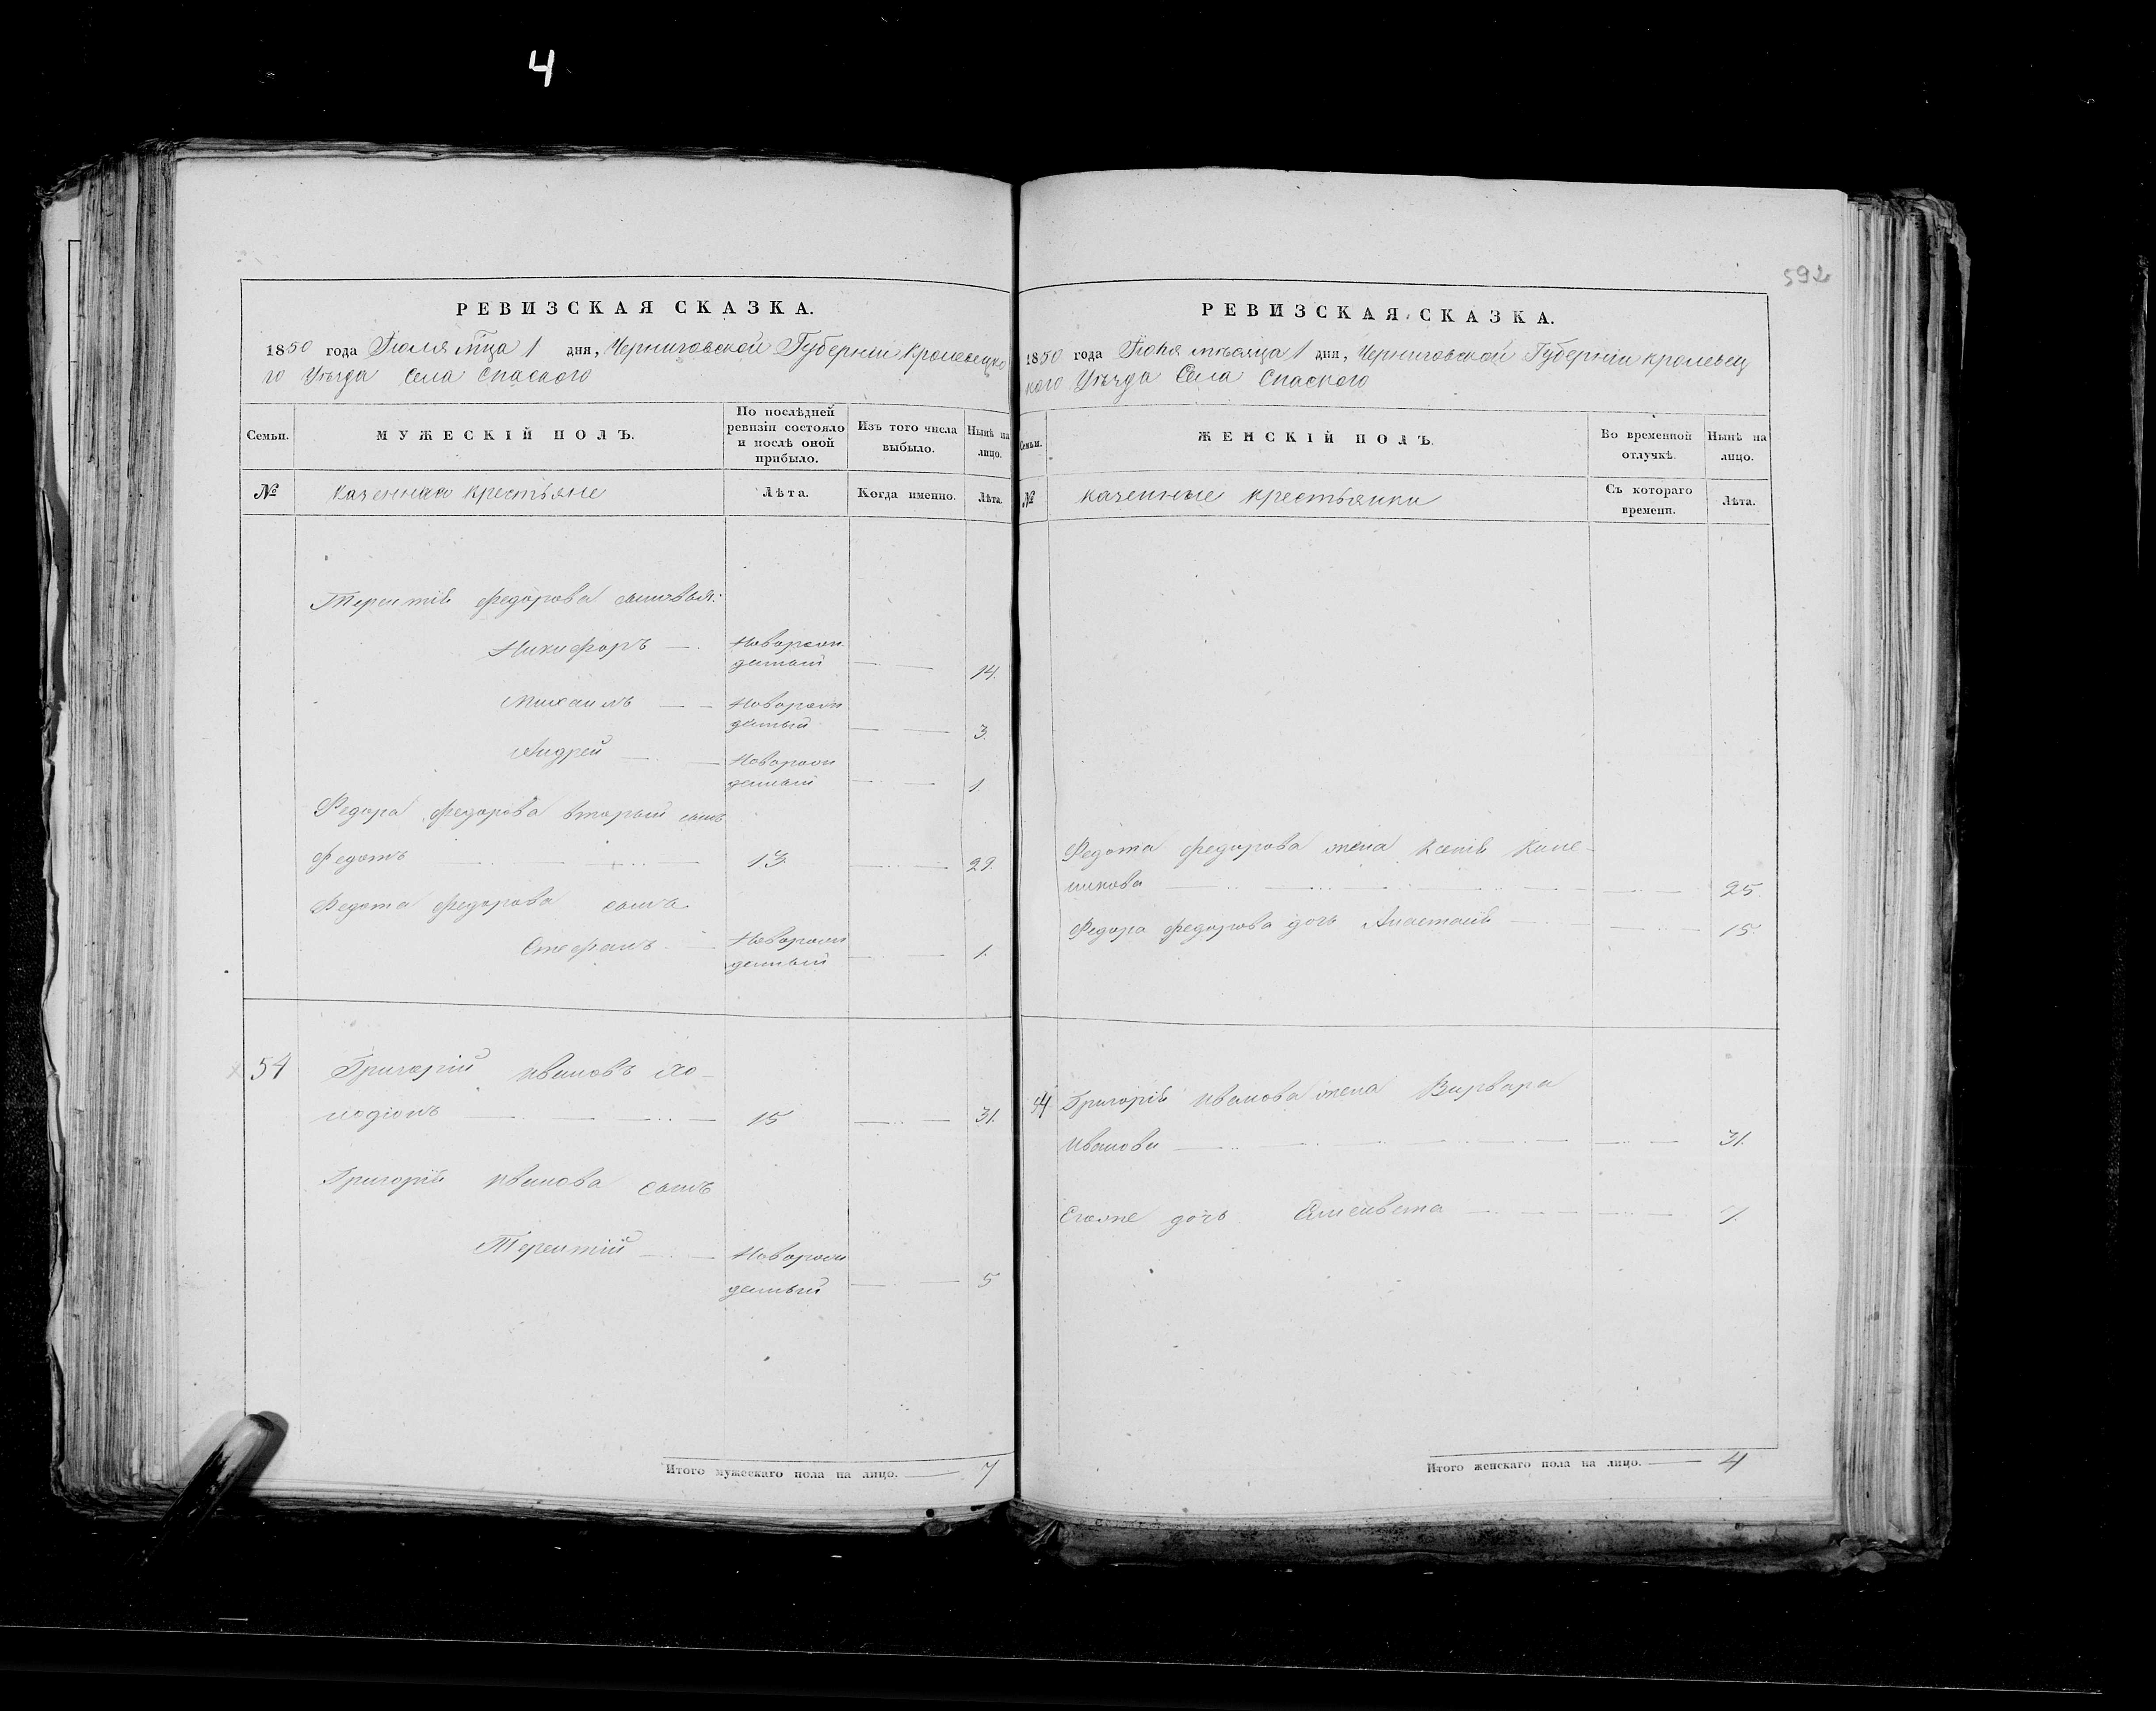 4
592
РЕВИЗСКАЯ СКАЗКА.
1850 года Іюля мца 1 дня, Черниговской Губерніи Кролевецко
го Уѣзда Села Спаского
Семьи. МУЖЕСКІЙ ПОЛЪ. По послѣдней ревизіи состояло и послѣ оной прибыло. Изъ того числа выбыло. Нынѣ на лицо.
№ казенная крестьяне Лѣта. Когда именно. Лѣта.
Терентій Федорова сыновья:
Никифоръ Новорож
денный 14.
Михаилъ Новорож
денный 3.
Андрей Новорож
денный 1.
Федора Федорова вторый сынъ
Федотъ 13. 29.
Федота Федорова сынъ
Стефанъ Новорож
денный 1.
54 Григорій Ивановъ Хо-
лодіонъ 15 31.
Григорій Иванова сынъ
Терентій Новорож
денный 5
Итого мужескаго пола на лицо. 7
РЕВИЗСКАЯ СКАЗКА.
1850 года Іюля мѣсяца 1 дня, Черниговской Губерніи Кролевец
кого Уѣзда Села Спаского
Семьи. ЖЕНСКІЙ ПОЛЪ. Во временной отлучкѣ. Нынѣ на лицо.
№ казенные крестьянки Съ котораго времени. Лѣта.
Федота Федорова жена Ксенія
25.
Федора Федорова дочь Анастасія 15.
54 Григорій Иванова жена Варвара
Иванова 31.
Егоже дочь Елисавета 7.
Итого женскаго пола на лицо. 4